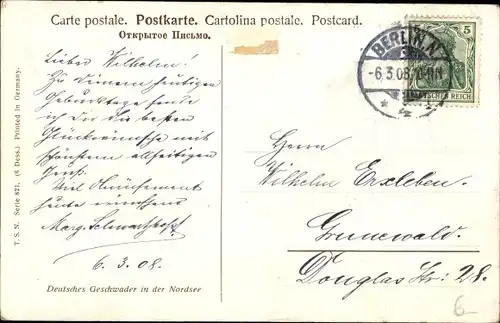 Carte postale. Postkarte. Cartolina postale. Postcard.
Открытое Письмо.
T. S. N. Serie 821. (6 Dess.) Printed in Germany.
Lieber Wilhelm!
Zu Deinem heutigen
Geburtstage sende
ich Dir die besten
Glückwünsche mit
schönsten allseitigen
Gruß.
Viel
heute wünschens
Marg.
6.3.08.
Deutsches Geschwader in der Nordsee
BERLIN.N.
-6.3.08.
4
5
DEUTSCHES REICH
Herrn
Wilhelm Erxleben.
Grunewald.
Douglas Str: 28.
6-